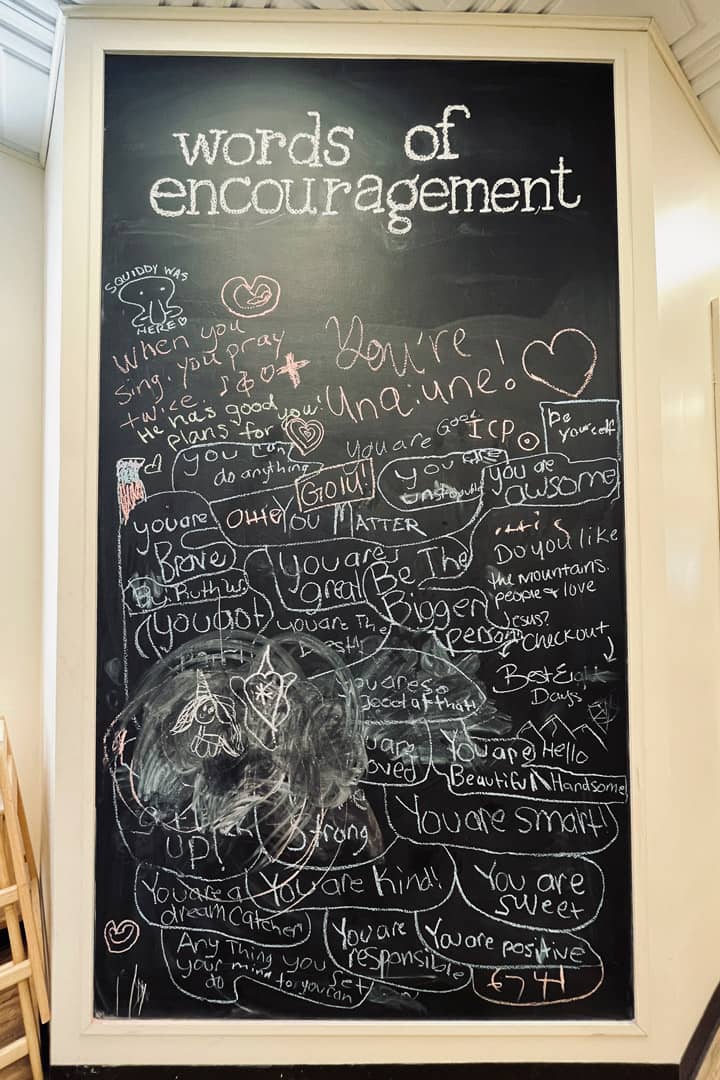 words of
encouragement
SQUIDDY WAS
HERE
When you
sing, you pray
twice.
He has good
plans for you!
You're
Unaiune!
You are Good
ICP
Be
yourself
you can
do anything
GOIU!
you are
unstoppable
you are
awsome
you are
Brave
YOU MATTER
you are
great
Be The
Bigger
person
Do you like
the mountains.
people & love
Jesus?
Checkout
Best Eight
Days
Be Ruth
you got
you are The
Best!
you are so
good at that!
you are
loved
You are
Beautiful
Hello
Handsome
up!
Strong
You are smart!
You are a
dream catcher
You are Kind!
You are
sweet
Any Thing you set
your mind to you can
do
You are
responsible
You are positive